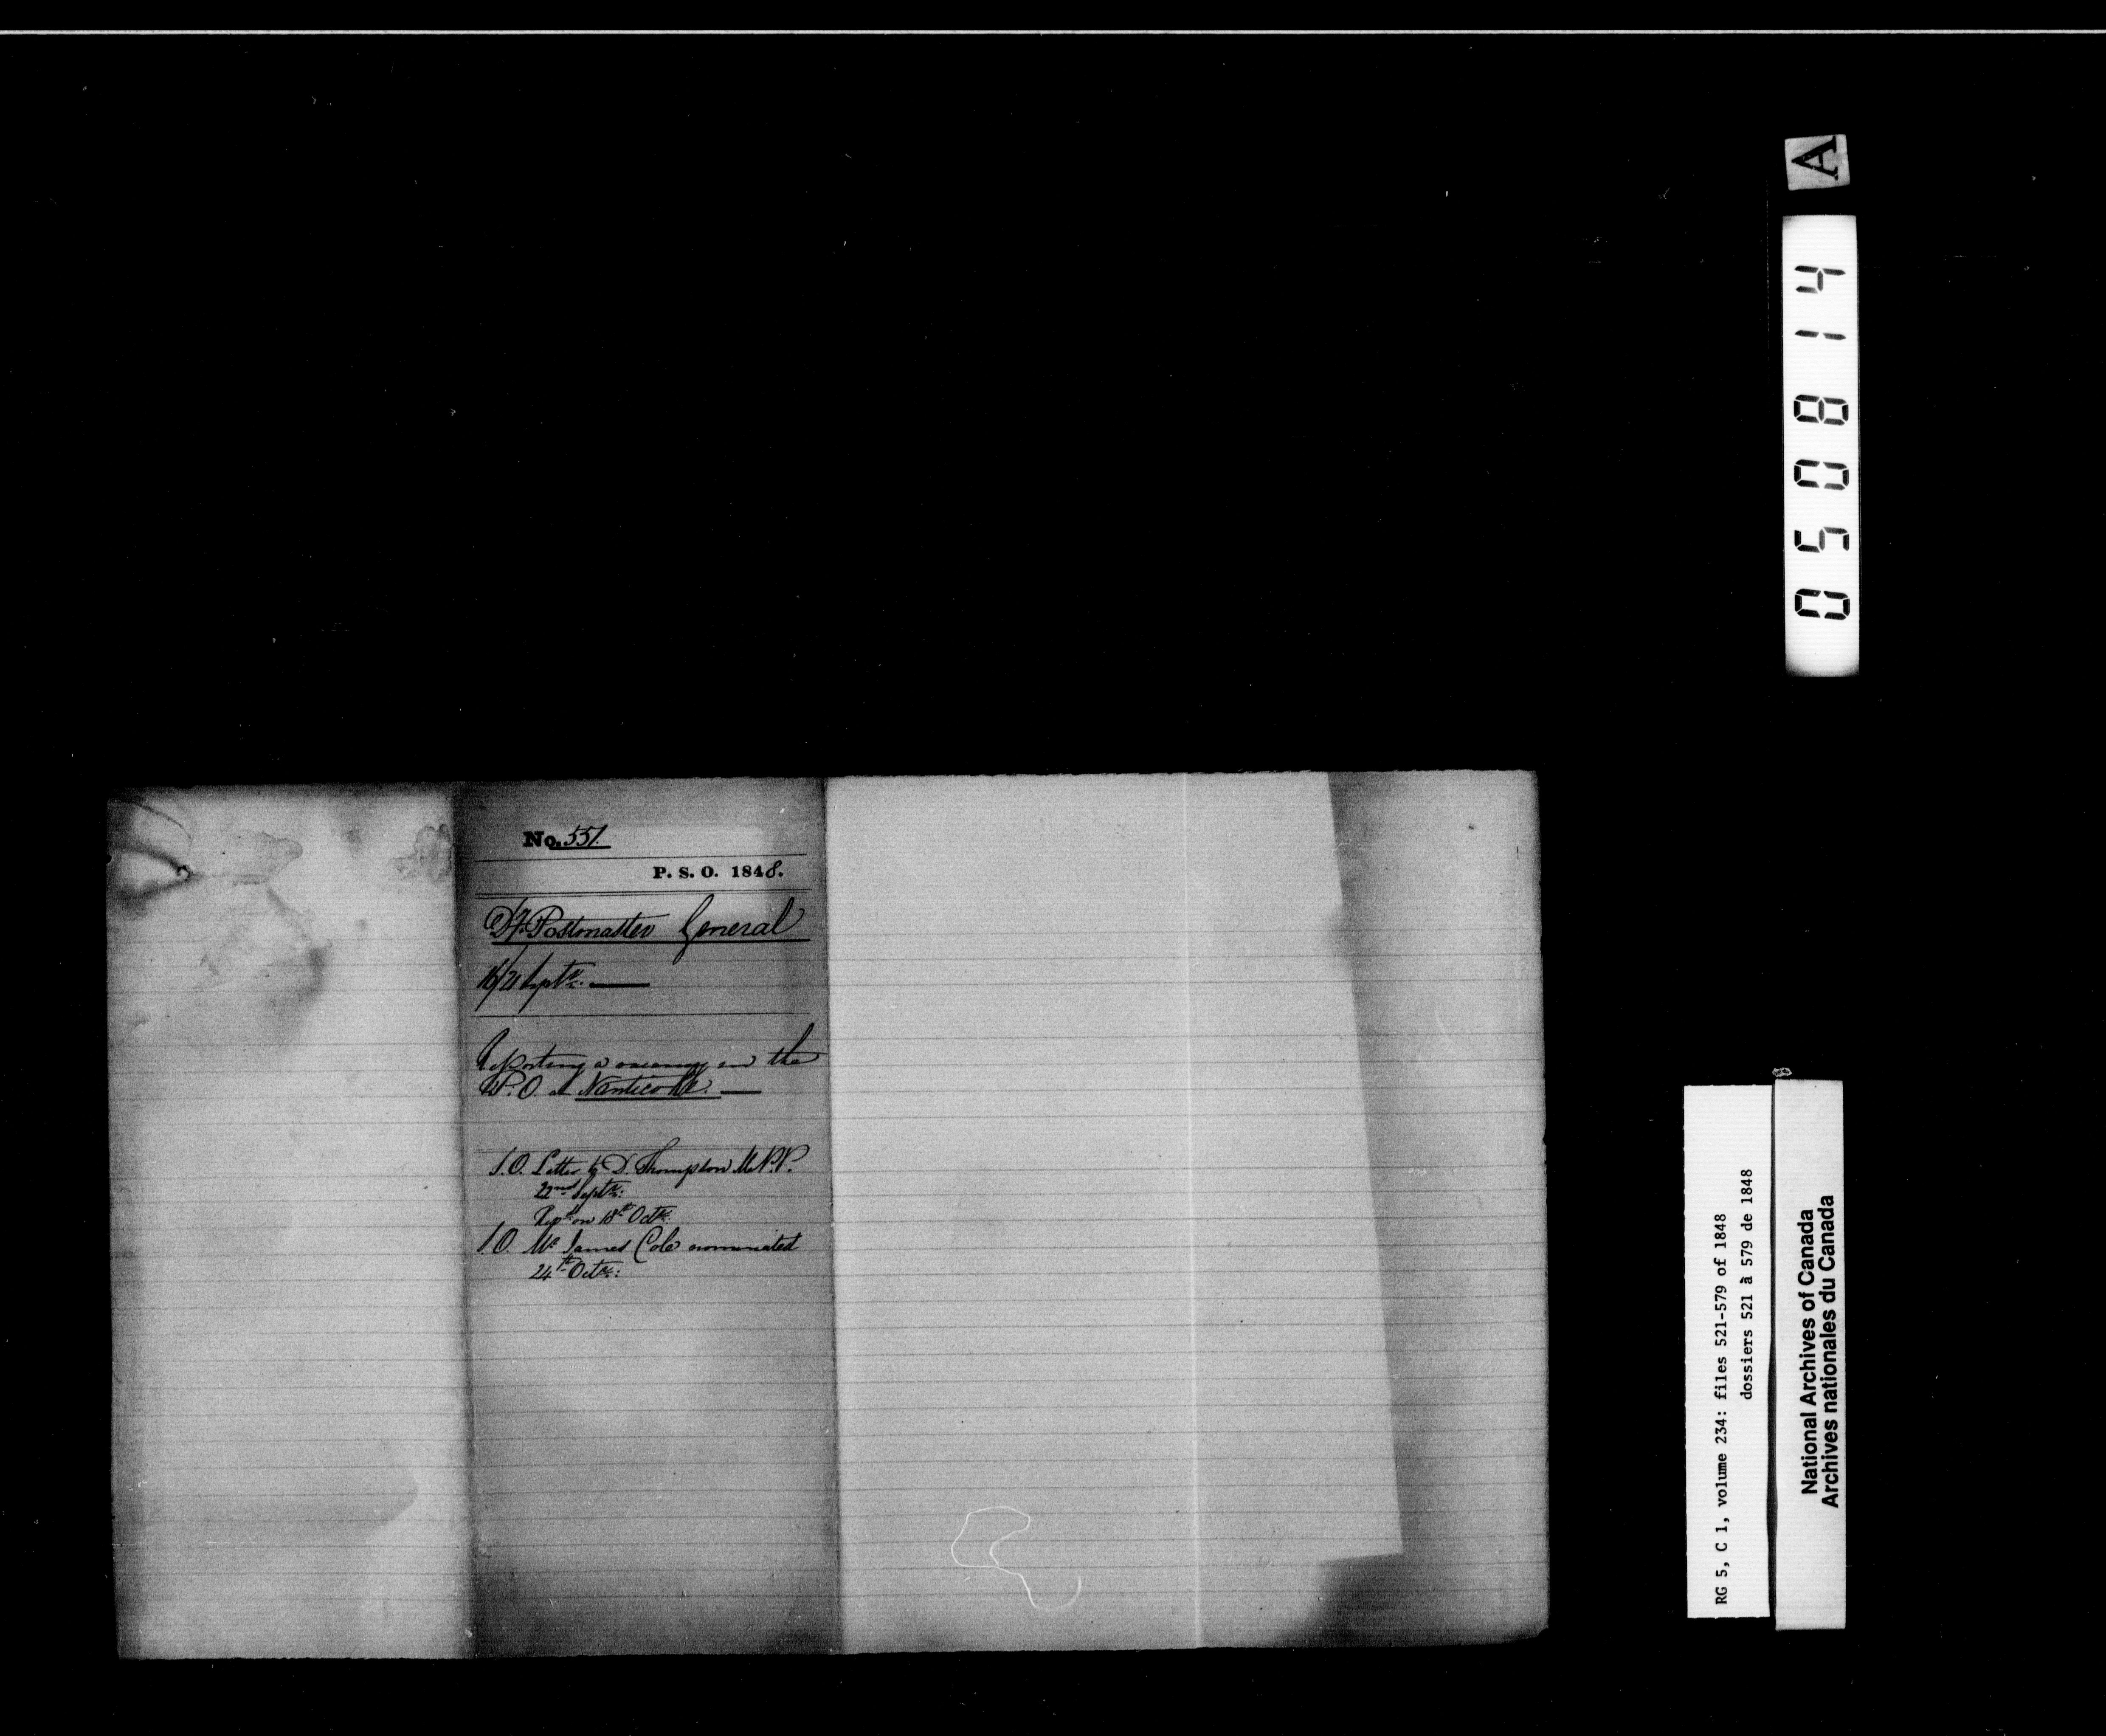 No. 551.
P. S. O. 1848.
Dy. Postmaster General
16/21 Septr. —
Reporting a vacancy in the
P. O. at Nanticoke. —
S.O. Letter to D. Thompson M.P.P.
22nd Septr:
Repd on 18th Octr.
S.O. Mr James Cole nominated
24th Octr:
A
050814
RG 5, C 1, volume 234: files 521-579 of 1848
dossiers 521 à 579 de 1848
National Archives of Canada
Archives nationales du Canada